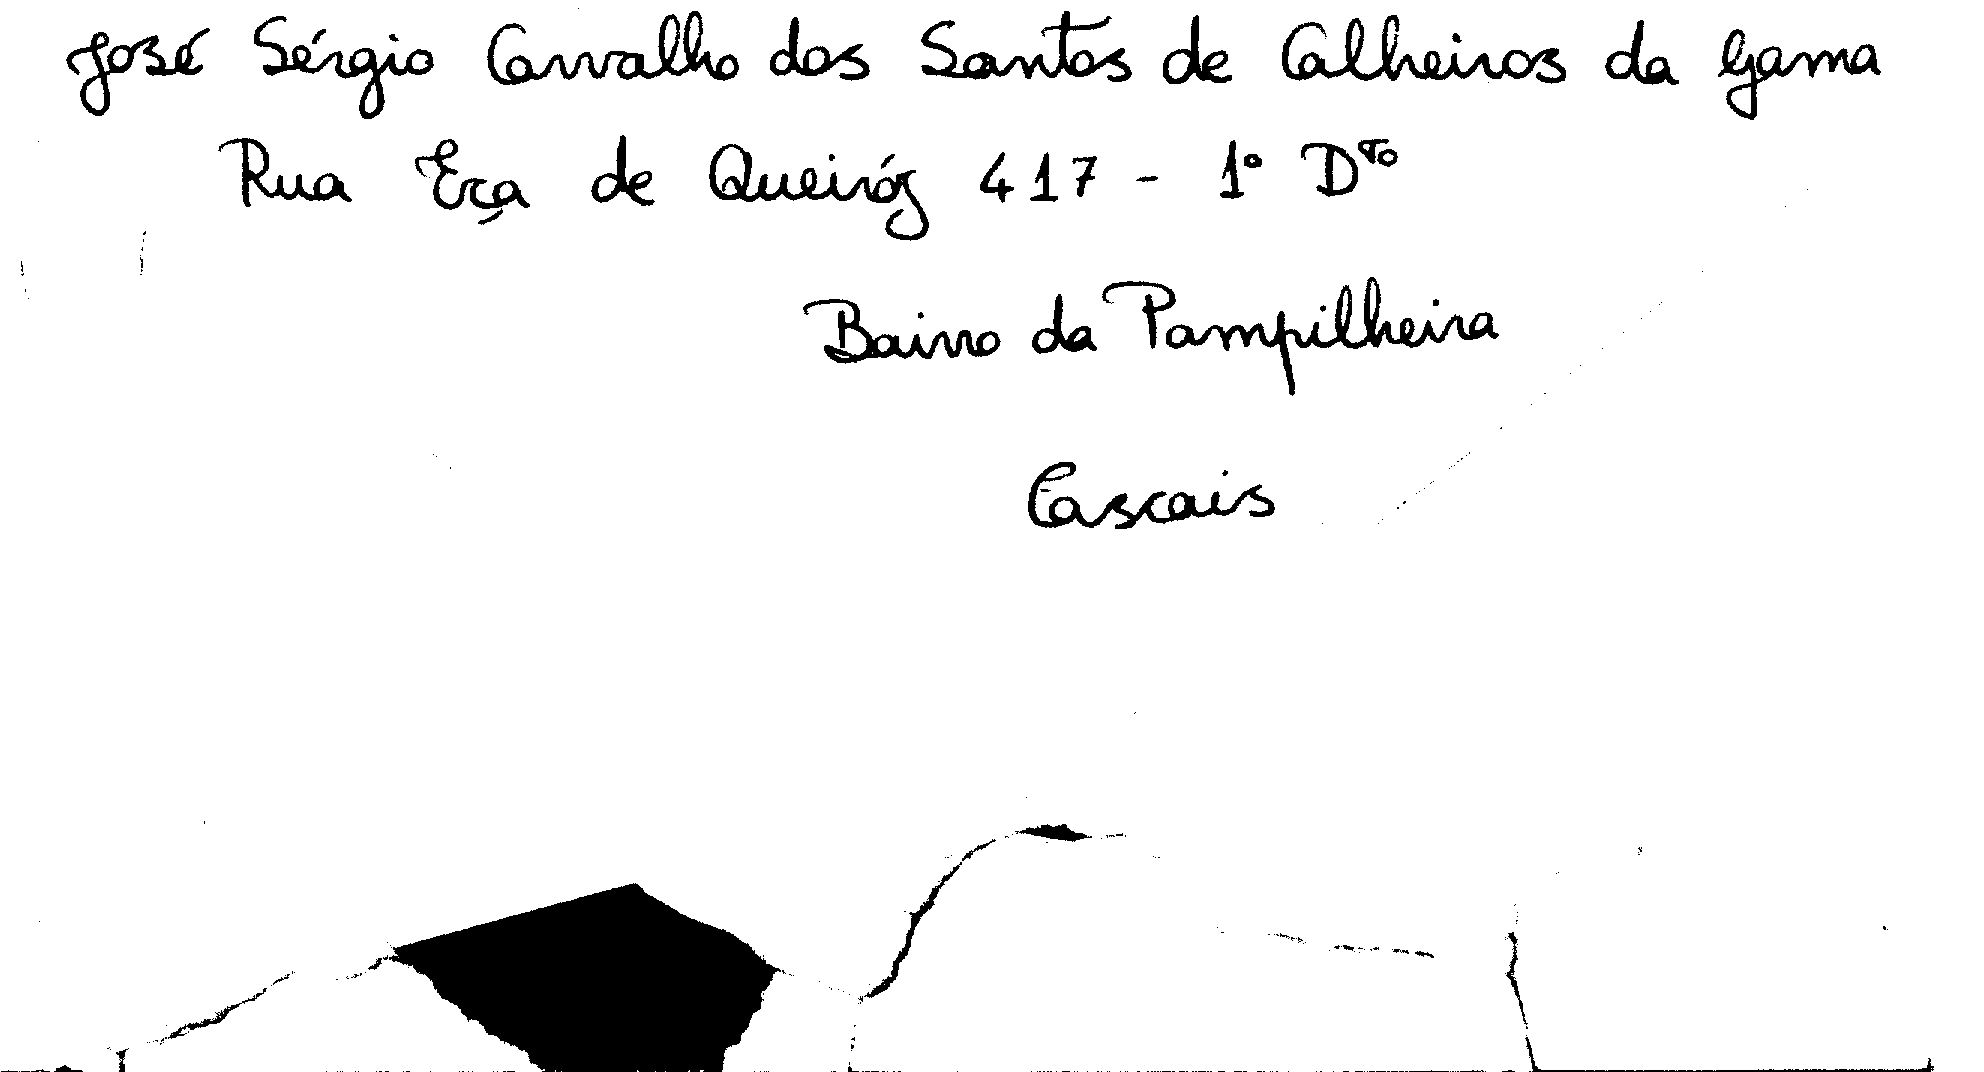 José Sérgio Carvalho dos Santos de Calheiros da Gama
Rua Eça de Queiróz 417 - 1º Dto
Bairro da Pampilheira
Cascais